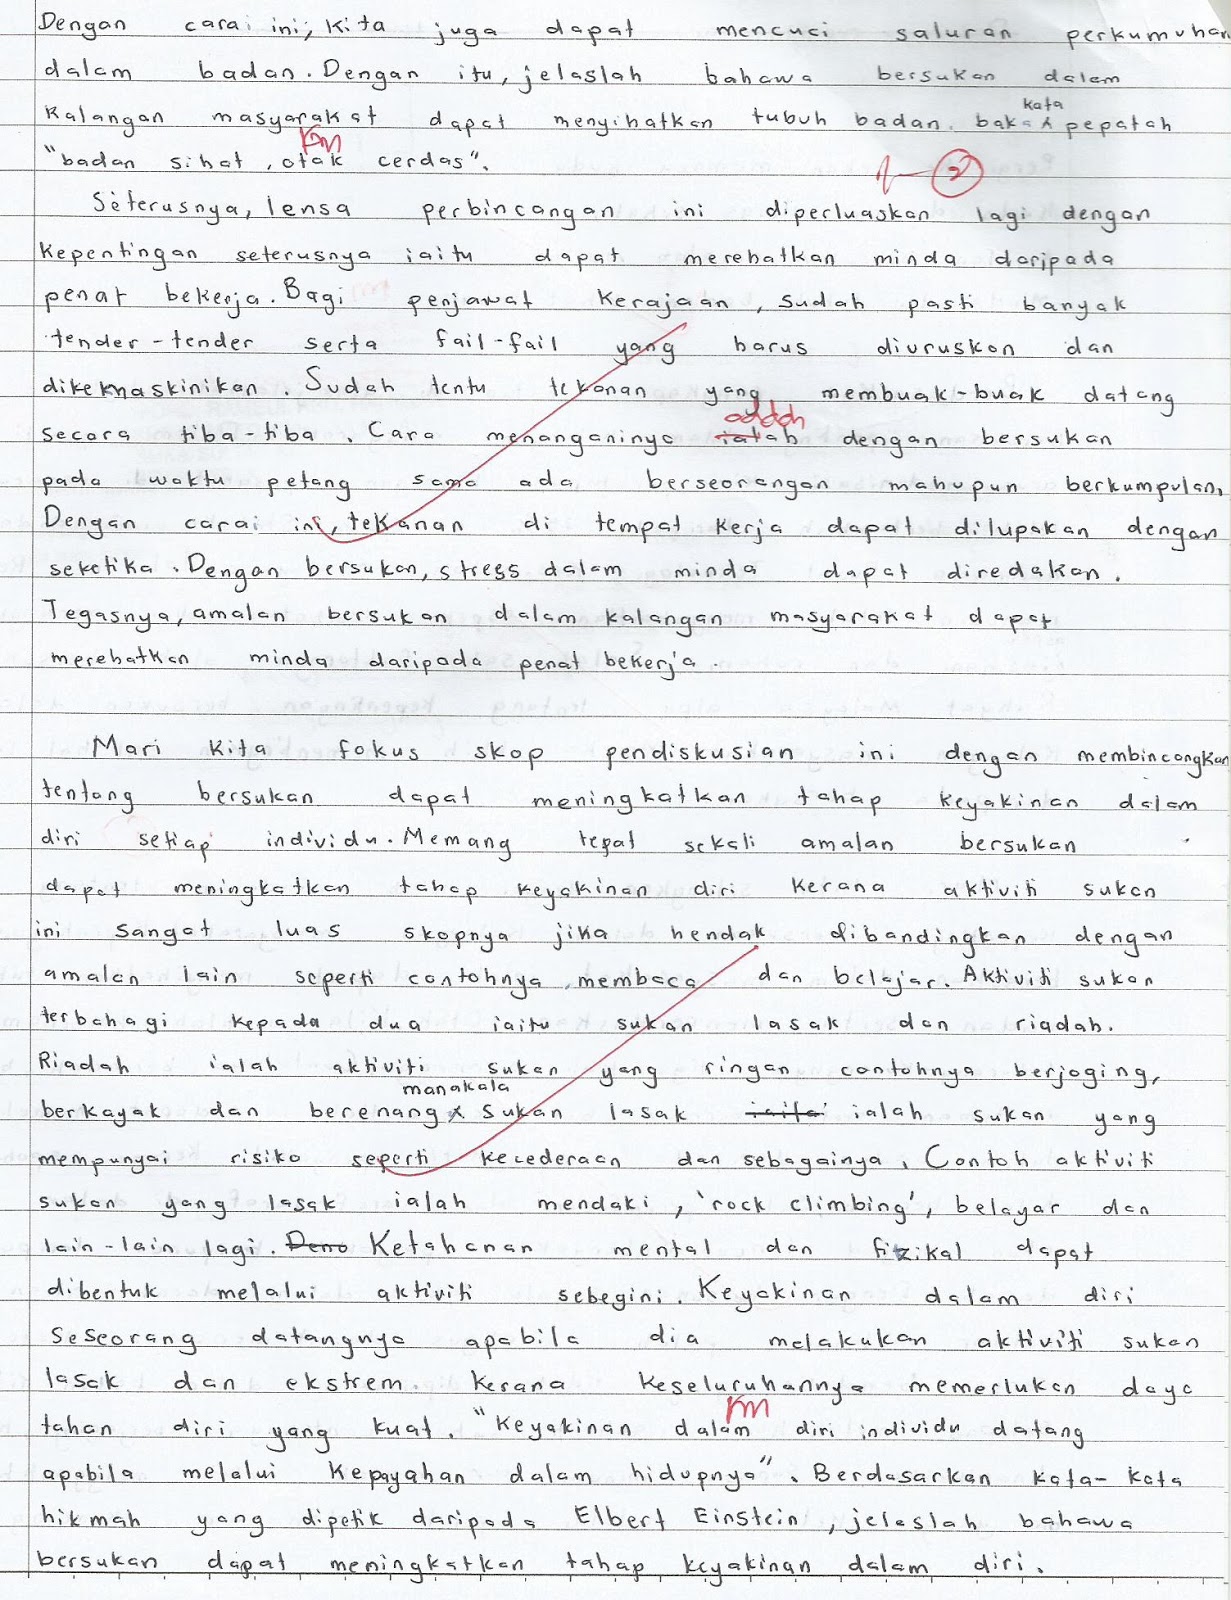 Dengan carai ini, kita juga dapat mencuci saluran perkumuhan
dalam badan. Dengan itu, jelaslah bahawa bersukan dalam
kalangan masyarakat dapat menyihatkan tubuh badan. bak kata pepatah
KM
"badan sihat, otak cerdas".
2
Seterusnya, lensa perbincangan ini diperluaskan lagi dengan
kepentingan seterusnya iaitu dapat merehatkan minda daripada
penat bekerja. Bagi penjawat kerajaan, sudah pasti banyak
tender-tender serta fail-fail yang harus diuruskan dan
dikemaskinikan. Sudah tentu tekanan yang membuak-buak datang
adalah
secara tiba-tiba. Cara menanganinya ialah dengan bersukan
pada waktu petang sama ada berseorangan mahupun berkumpulan.
Dengan carai ini, tekanan di tempat kerja dapat dilupakan dengan
seketika. Dengan bersukan, stress dalam minda dapat diredakan.
Tegasnya, amalan bersukan dalam kalangan masyarakat dapat
merehatkan minda daripada penat bekerja.
Mari kita fokus skop pendiskusian ini dengan membincangkan
tentang bersukan dapat meningkatkan tahap keyakinan dalam
diri setiap individu. Memang tepat sekali amalan bersukan
dapat meningkatkan tahap keyakinan diri kerana aktiviti sukan
ini sangat luas skopnya jika hendak dibandingkan dengan
amalan lain seperti contohnya, membaca dan belajar. Aktiviti sukan
terbahagi kepada dua iaitu sukan lasak dan riadah.
Riadah ialah aktiviti sukan yang ringan contohnya berjoging,
manakala
berkayak dan berenang sukan lasak iaitu ialah sukan yang
mempunyai risiko seperti kecederaan dan sebagainya. Contoh aktiviti
sukan yang lasak ialah mendaki, 'rock climbing', belayar dan
lain-lain lagi. Ketahanan mental dan fizikal dapat
dibentuk melalui aktiviti sebegini. Keyakinan dalam diri
seseorang datangnya apabila dia melakukan aktiviti sukan
lasak dan ekstrem. Kerana keseluruhannya memerlukan daya
KM
tahan diri yang kuat. "Keyakinan dalam diri individu datang
apabila melalui kepayahan dalam hidupnya". Berdasarkan kata-kata
hikmah yang dipetik daripada Elbert Einstein, jelaslah bahawa
bersukan dapat meningkatkan tahap keyakinan dalam diri.